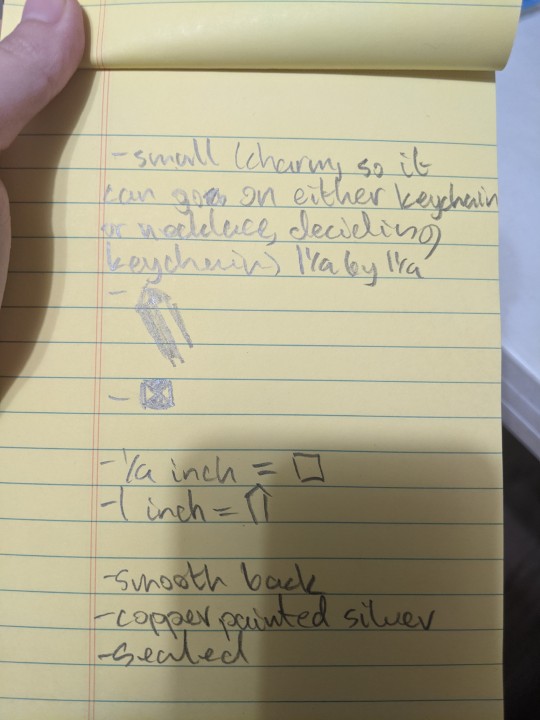 - small (charm, so it
can go on either keychain
or necklace, deciding
keychain) 1 1/2 by 1 1/2
-
-
- 1/2 inch = □
- 1 inch =
- smooth back
- copper painted silver
- sealed